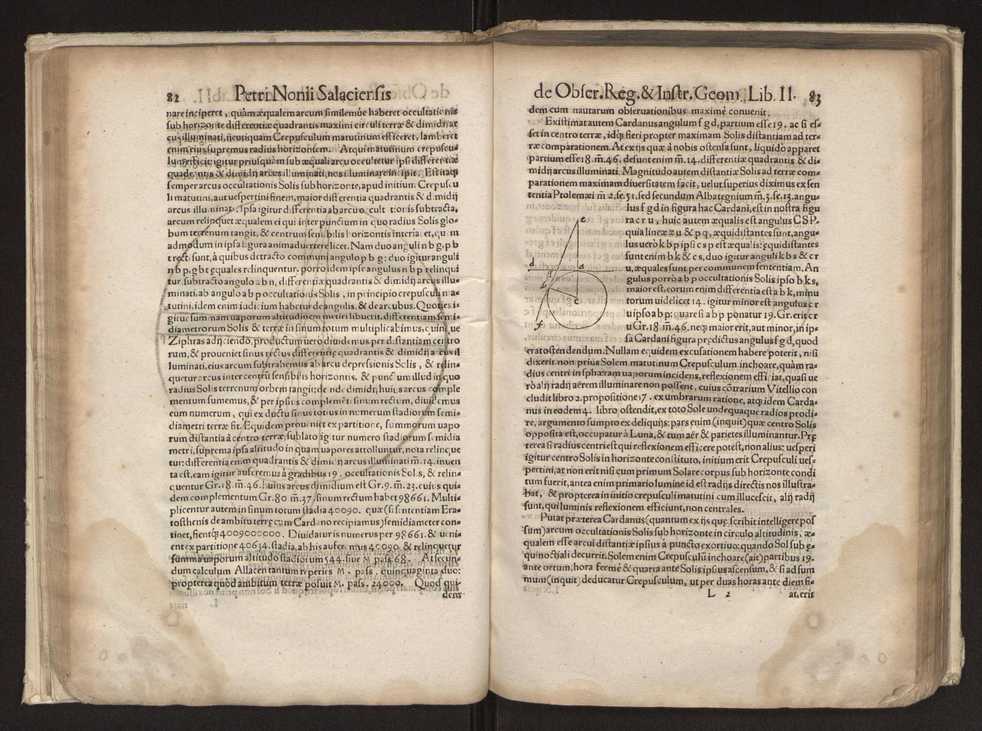 82 Petri Nonii Salaciensis
nare inciperet, quàm æqualem arcum similemúe haberet occultationis
sub horizonte differentiæ quadrantis maximi circuli terræ & dimidij ar
cus illuminati, neutiquam Crepusculum matutinum efficeret, lamberet
enim eius supremus radius horizontem. Atqui matutinum crepuscu
lum efficit: igitur priusquàm sub æquali arcu occultetur ipsi differentiæ
quadrantis & dimidij arcus illuminati, nos illuminare incipit. Est itaque
semper arcus occultationis Solis sub horizonte, apud initium Crepuscu
li matutini, aut vespertini finem, maior differentia quadrantis & dimidij
arcus illuminati. Ipsa igitur differentia ab arcu occultationis subtracta,
arcum relinquet æqualem ei qui inter punctum in quo radius Solis glo
bum terrenum tangit, & centrum sensibilis horizontis interiacet, quem
admodum in ipsa figura animaduertere licet. Nam duo anguli n b g, p b
t rect sunt, à quibus detracto communi angulo p b g: duo igitur anguli
n b p, g b t æquales relinquentur. porro idem ipse angulus n b p relinqui
tur subtracto angulo a b n, differentia quadrantis & dimidij arcus illu-
minati, ab angulo a b p occultationis Solis, in principio crepusculi ma-
tutini, idem enim iudicium habetur de angulis, & de arcubus. Quoties i-
gitur summam vaporum altitudinem metiri libuerit, differentiam semi-
diametrorum Solis & terræ in sinum totum multiplicabimus, quinque
Ziphras adijciendo, productum verò diuidemus per distantiam centro
rum, & proueniet sinus rectus differentiæ quadrantis & dimidij arcus il
luminati, eius arcum subtrahemus ab arcu depressionis Solis, & relin-
quetur arcus inter centrum sensibilis horizontis, & punctum illud in quo
radius Solis terrenum orbem tangit: de nde dimidij huius arcus comple
mentum sumemus, & per ipsius complementi sinum rectum, diuidemus
eum numerum, qui ex ductu sinus totius in numerum stadiorum semi-
diametri terræ fit. Equidem prouenit ex partitione, summorum vapo
rum distantia à centro terræ, sublato igitur numero stadiorum semidia
metri, suprema ipsa altitudo in quam vapores attolluntur, nota relinque
tur: differentia enim quadrantis & dimidij arcus illuminati m. 14. inuen
ta est. eam igitur auferemus à gradibus 19. occultationis Solis, & relin-
quentur Gr. 18. m. 46. huius arcus dimidium est Gr. 9. m. 23. cuius qui-
dem complementum Gr. 80 m. 37. sinum rectum habet 98661. Multi-
plicentur autem in sinum totum stadia 40090. quæ (si sententiam Era-
tosthenis de ambitu terræ cum Cardano recipiamus) semidiameter con-
tinet, fientq; 4009000000. Diuidatur is numerus per 98661. & veni-
ent ex partitione 40634. stadia, ab his auferemus 40090. & relinquetur
summa vaporum altitudo stadiorum 544. siue M. pass. 68. At secun-
dum calculum Allacen tantum reperies M. pass. quinquaginta duo:
propterea quòd ambitum terræ posuit M. pass. 24000. Quod qui-
dem
de Obser. Reg. & Instr. Geom. Lib. II. 83
dem cum nautarum obseruationibus maximè conuenit.
Existimat autem Cardanus angulum f g d, partium esse 19, ac si es-
set in centro terræ, idq; fieri propter maximam Solis distantiam ad ter-
ræ comparationem. At ex ijs quæ à nobis ostensa sunt, liquidò apparet
partium esse 18. m. 46. desunt enim m. 14. differentiæ quadrantis & di-
midij arcus illuminati. Magnitudo autem distantiæ Solis ad terræ com-
parationem maximam diuersitatem facit, velut superius diximus ex sen
tentia Ptolemæi m 2. se. 51. sed secundum Albategnium m. 3. se. 13. angu-
lus f g d in figura hac Cardani, est in nostra figu
ra c r u, huic autem æqualis est angulus C S P.
quia lineæ z u & p q, æquidistantes sunt, angu-
lus verò k b p ipsi c s p est æqualis: æquidistantes
sunt enim b k & c s, duo igitur anguli k b s & c r
u, æquales sunt per communem sententiam. An
gulus porrò a b p occultationis Solis ipso b k s,
maior est. eorum enim differentia est a b k, minu
torum videlicet 14. igitur minor est angulus c r
u ipso a b p: quare si a b p ponatur 19. Gr. erit c r
u Gr. 18. m. 46. neq; maior erit, aut minor, in ip-
sa Cardani figura prædictus angulus f g d, quod
erat ostendendum. Nullam equidem excusationem habere poterit, nisi
dixerit non prius Solem matutinum Crepusculum inchoare, quàm ra-
dius centri in sphæram vaporum incidens, reflexionem efficiat, quasi ve
rò alij radij aërem illuminare non possent, cuius contrarium Vitellio con
cludit libro 2. propositione 17. ex vmbrarum ratione, atq; idem Carda-
nus in eodem 4. libro ostendit, ex toto Sole vndequaque radios prodi-
re, argumento sumpto ex deliquijs: pars enim (inquit) quæ centro Solis
opposita est, occupatur à Luna, & tum aër & parietes illuminantur. Præ
terea si radius centri est qui reflexionem efficere potest, non alius: vesperi
igitur centro Solis in horizonte constituto, initium erit Crepusculi ves-
pertini, at non erit nisi cum primum Solare corpus sub horizonte condi
tum fuerit, antea enim primario lumine id est radijs directis nos illustra-
bat, & propterea in initio crepusculi matutini cum illucescit, alij radij
sunt, qui luminis reflexionem efficiunt, non centrales.
Putat præterea Cardanus (quantum ex ijs quæ scribit intelligere pos
sum) arcum occultationis Solis sub horizonte in circulo altitudinis, æ-
qualem esse arcui distantiæ ipsius à puncto exortiuo: quando Sol sub æ-
quinoctiali decurrit. Solem enim Crepusculũ inchoare (ais) partibus 19.
ante ortum, hora fermè & quarta ante Solis ipsius ascensum, & si ad sum
mum (inquit) deducatur Crepusculum, vt per duas horas ante diem fi-
L 2 at, erit
e
d
a
b
c
f